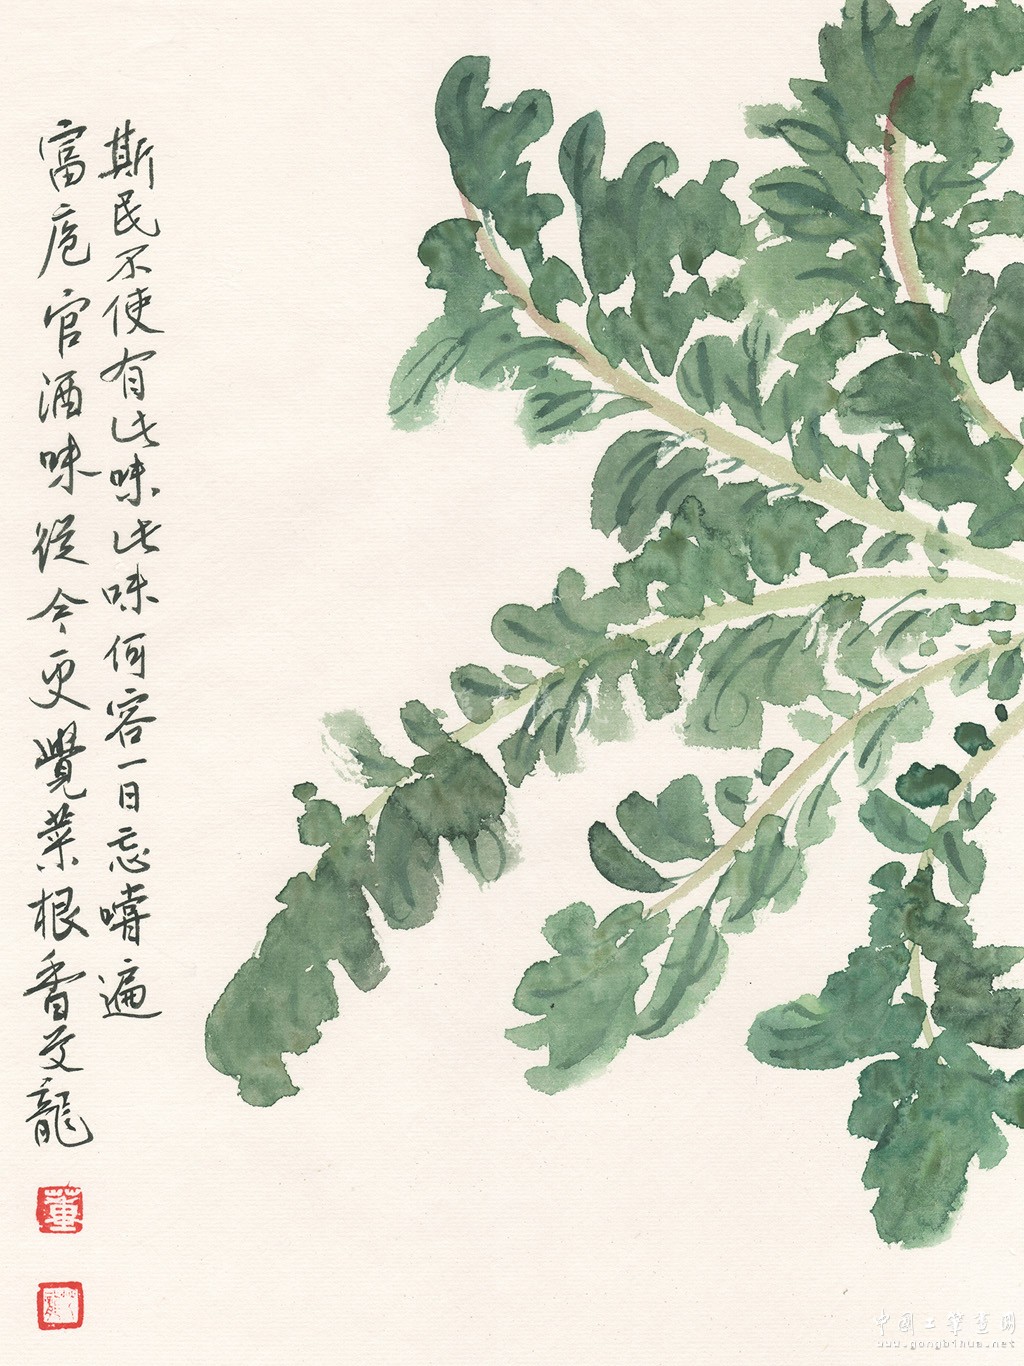 斯民不使有此味此味何容一日忘嚐遍
富庖官酒味從今更覺菜根香文龍
董
中国工笔画网
www.gongbihua.net